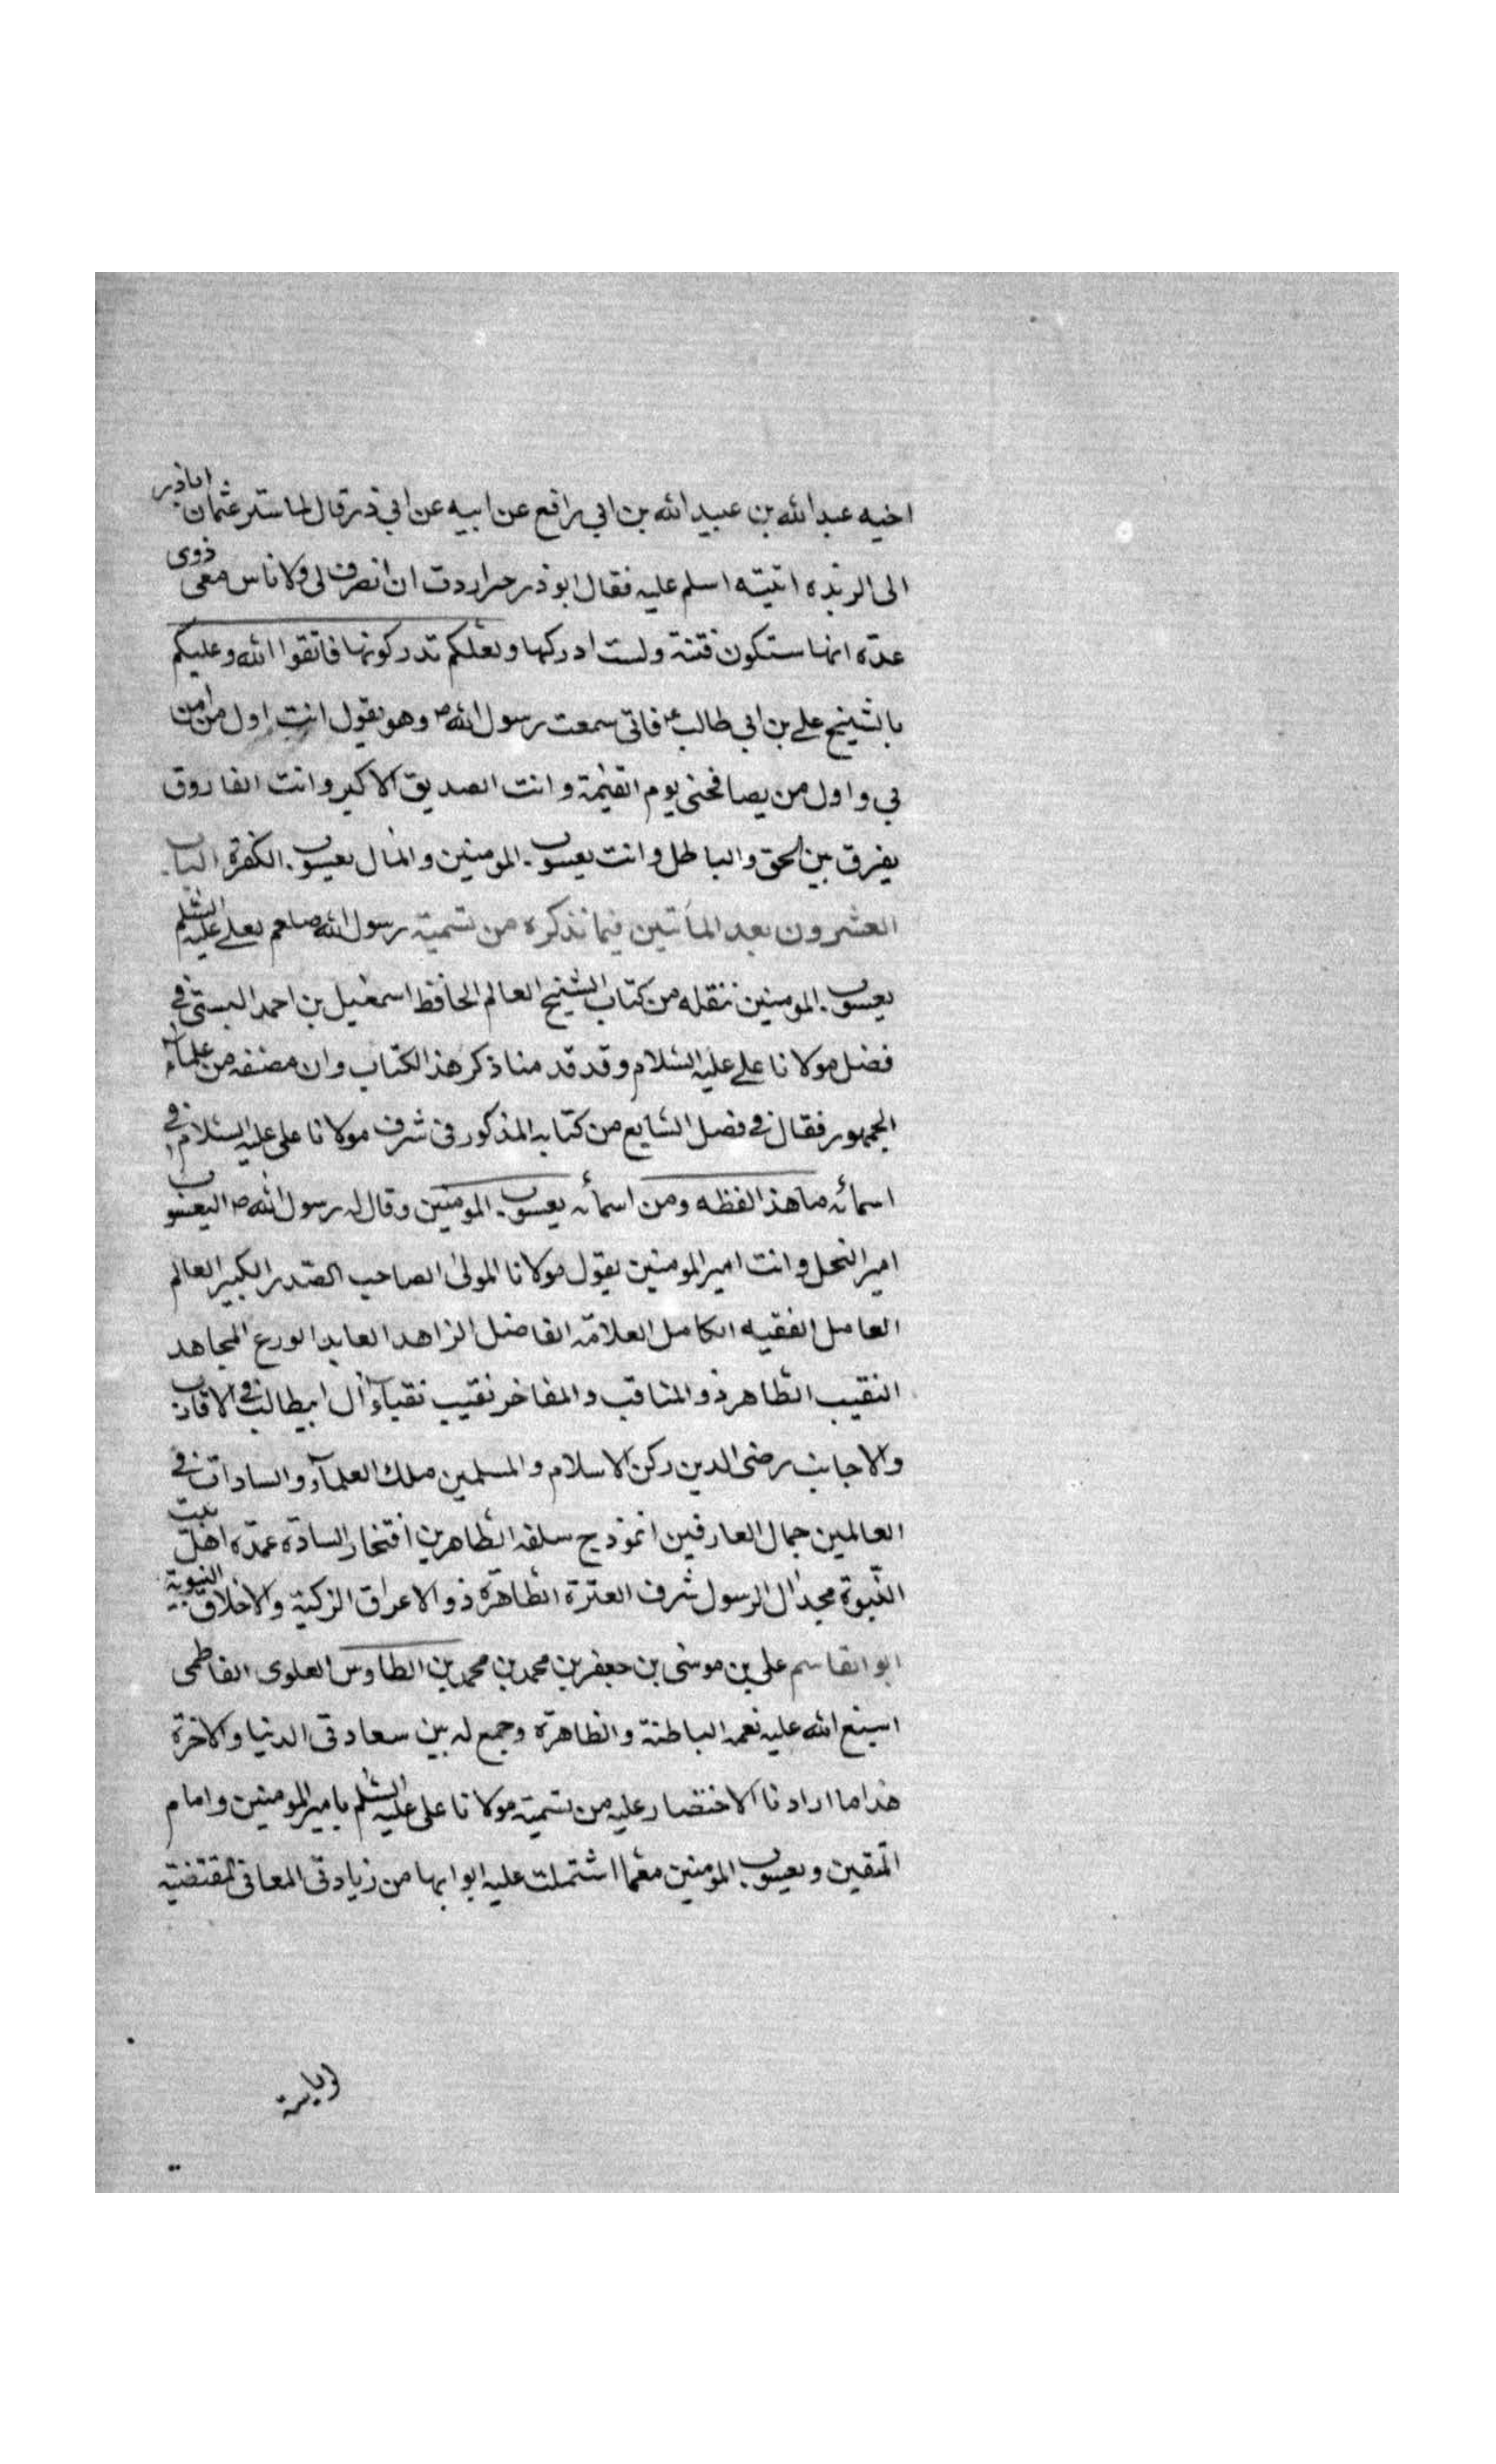 اخيه عبد الله بن عبيد الله بن ابي رافع عن ابيه عن ابي ذر قال لما سير عثمان اباذر
الى الربذه اتيته اسلم عليه فقال ابوذر حر اردت ان انصرف لي ولاناس معى ذوى
عدّه انها ستكون فتنة ولست ادركها ولعلكم تدركونها فاتقوا الله وعليكم
بالشيخ علے بن ابي طالب ع فانى سمعت رسول الله ص وهو يقول انت اول من امن
بي واول من يصافحنى يوم القيمة وانت الصديق الاكبر وانت الفاروق
يفرق بين الحق والباطل وانت يعسوب المومنين والمال يعسوب الكفرة الباب
العشرون بعد المأتين فيما نذكره من تسمية رسول الله صلعم لعلے عليه السلم
يعسوب المومنين ننقله من كتاب الشيخ العالم الحافظ اسمعيل بن احمد البستى في
فضل مولانا علے عليه السلام وقد قدمنا ذكر هذا الكتاب وان مصنفه من علمآء
الجمهور فقال في فصل السابع من كتابه المذكور فى شرف مولانا على عليه السلام في
اسمائه ما هذا لفظه ومن اسمائه يعسوب المومنين وقال له رسول الله ص اليعسوب
امير النحل وانت امير المومنين يقول مولانا المولىٰ الصاحب الصدر الكبير العالم
العامل الفقيه الكامل العلامّه الفاضل الزاهد العابد الورع المجاهد
النقيب الطاهر ذو المناقب والمفاخر نقيب نقباء آل ابيطالب في الاقارب
والاجانب رضى الدين ركن الاسلام والمسلمين ملك العلمآء والسادات في
العالمين جمال العارفين انموذج سلفه الطاهرين افتخار السادة عمدة اهل بيت
النّبوة مجد ال الرسول شرف العترة الطاهرة ذو الاعراق الزكية والاخلاق النبوية
ابو القاسم على بن موسى بن جعفر بن محمد بن محمد بن الطاوس العلوى الفاطمى
اسبغ الله عليه نعمه الباطنة والظاهرة وجمع له بين سعادتى الدنيا والاخرة
هذا ما اردنا الاختصار عليه من تسمية مولانا على عليه السلم بامير المومنين وامام
المتقين ويعسوب المومنين معما اشتملت عليه ابوابها من زيادتى المعانى لمقتضية